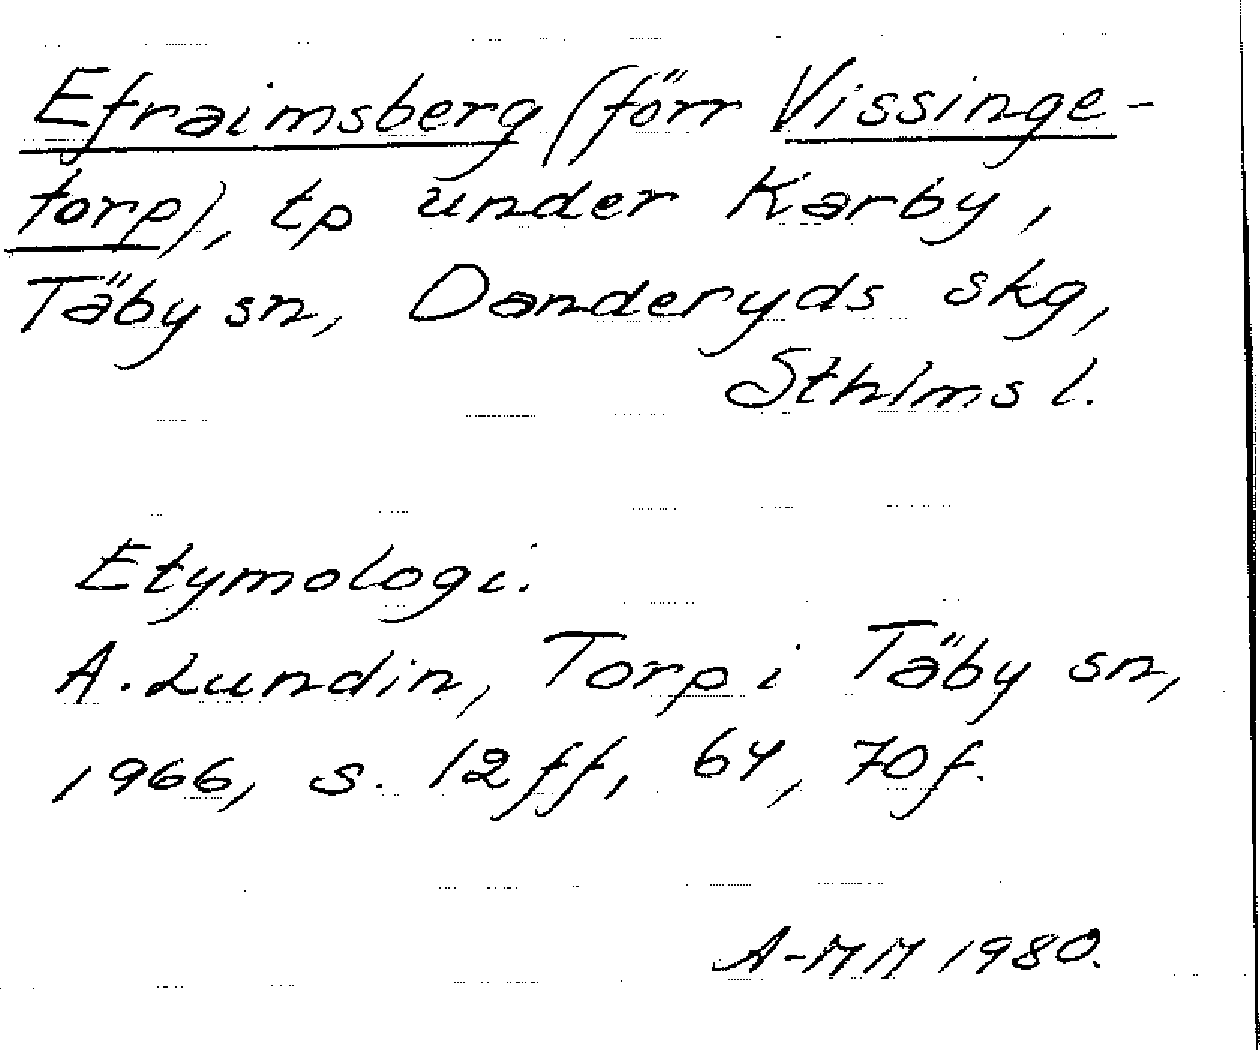 Efraimsberg (förr Vissinge-
torp), tp under Karby,
Täby sn, Danderyds skg,
Sthlms l.
Etymologi.
A. Lundin, Torp i Täby sn,
1966, s. 12 ff, 64, 70 f.
A-MM 1980.